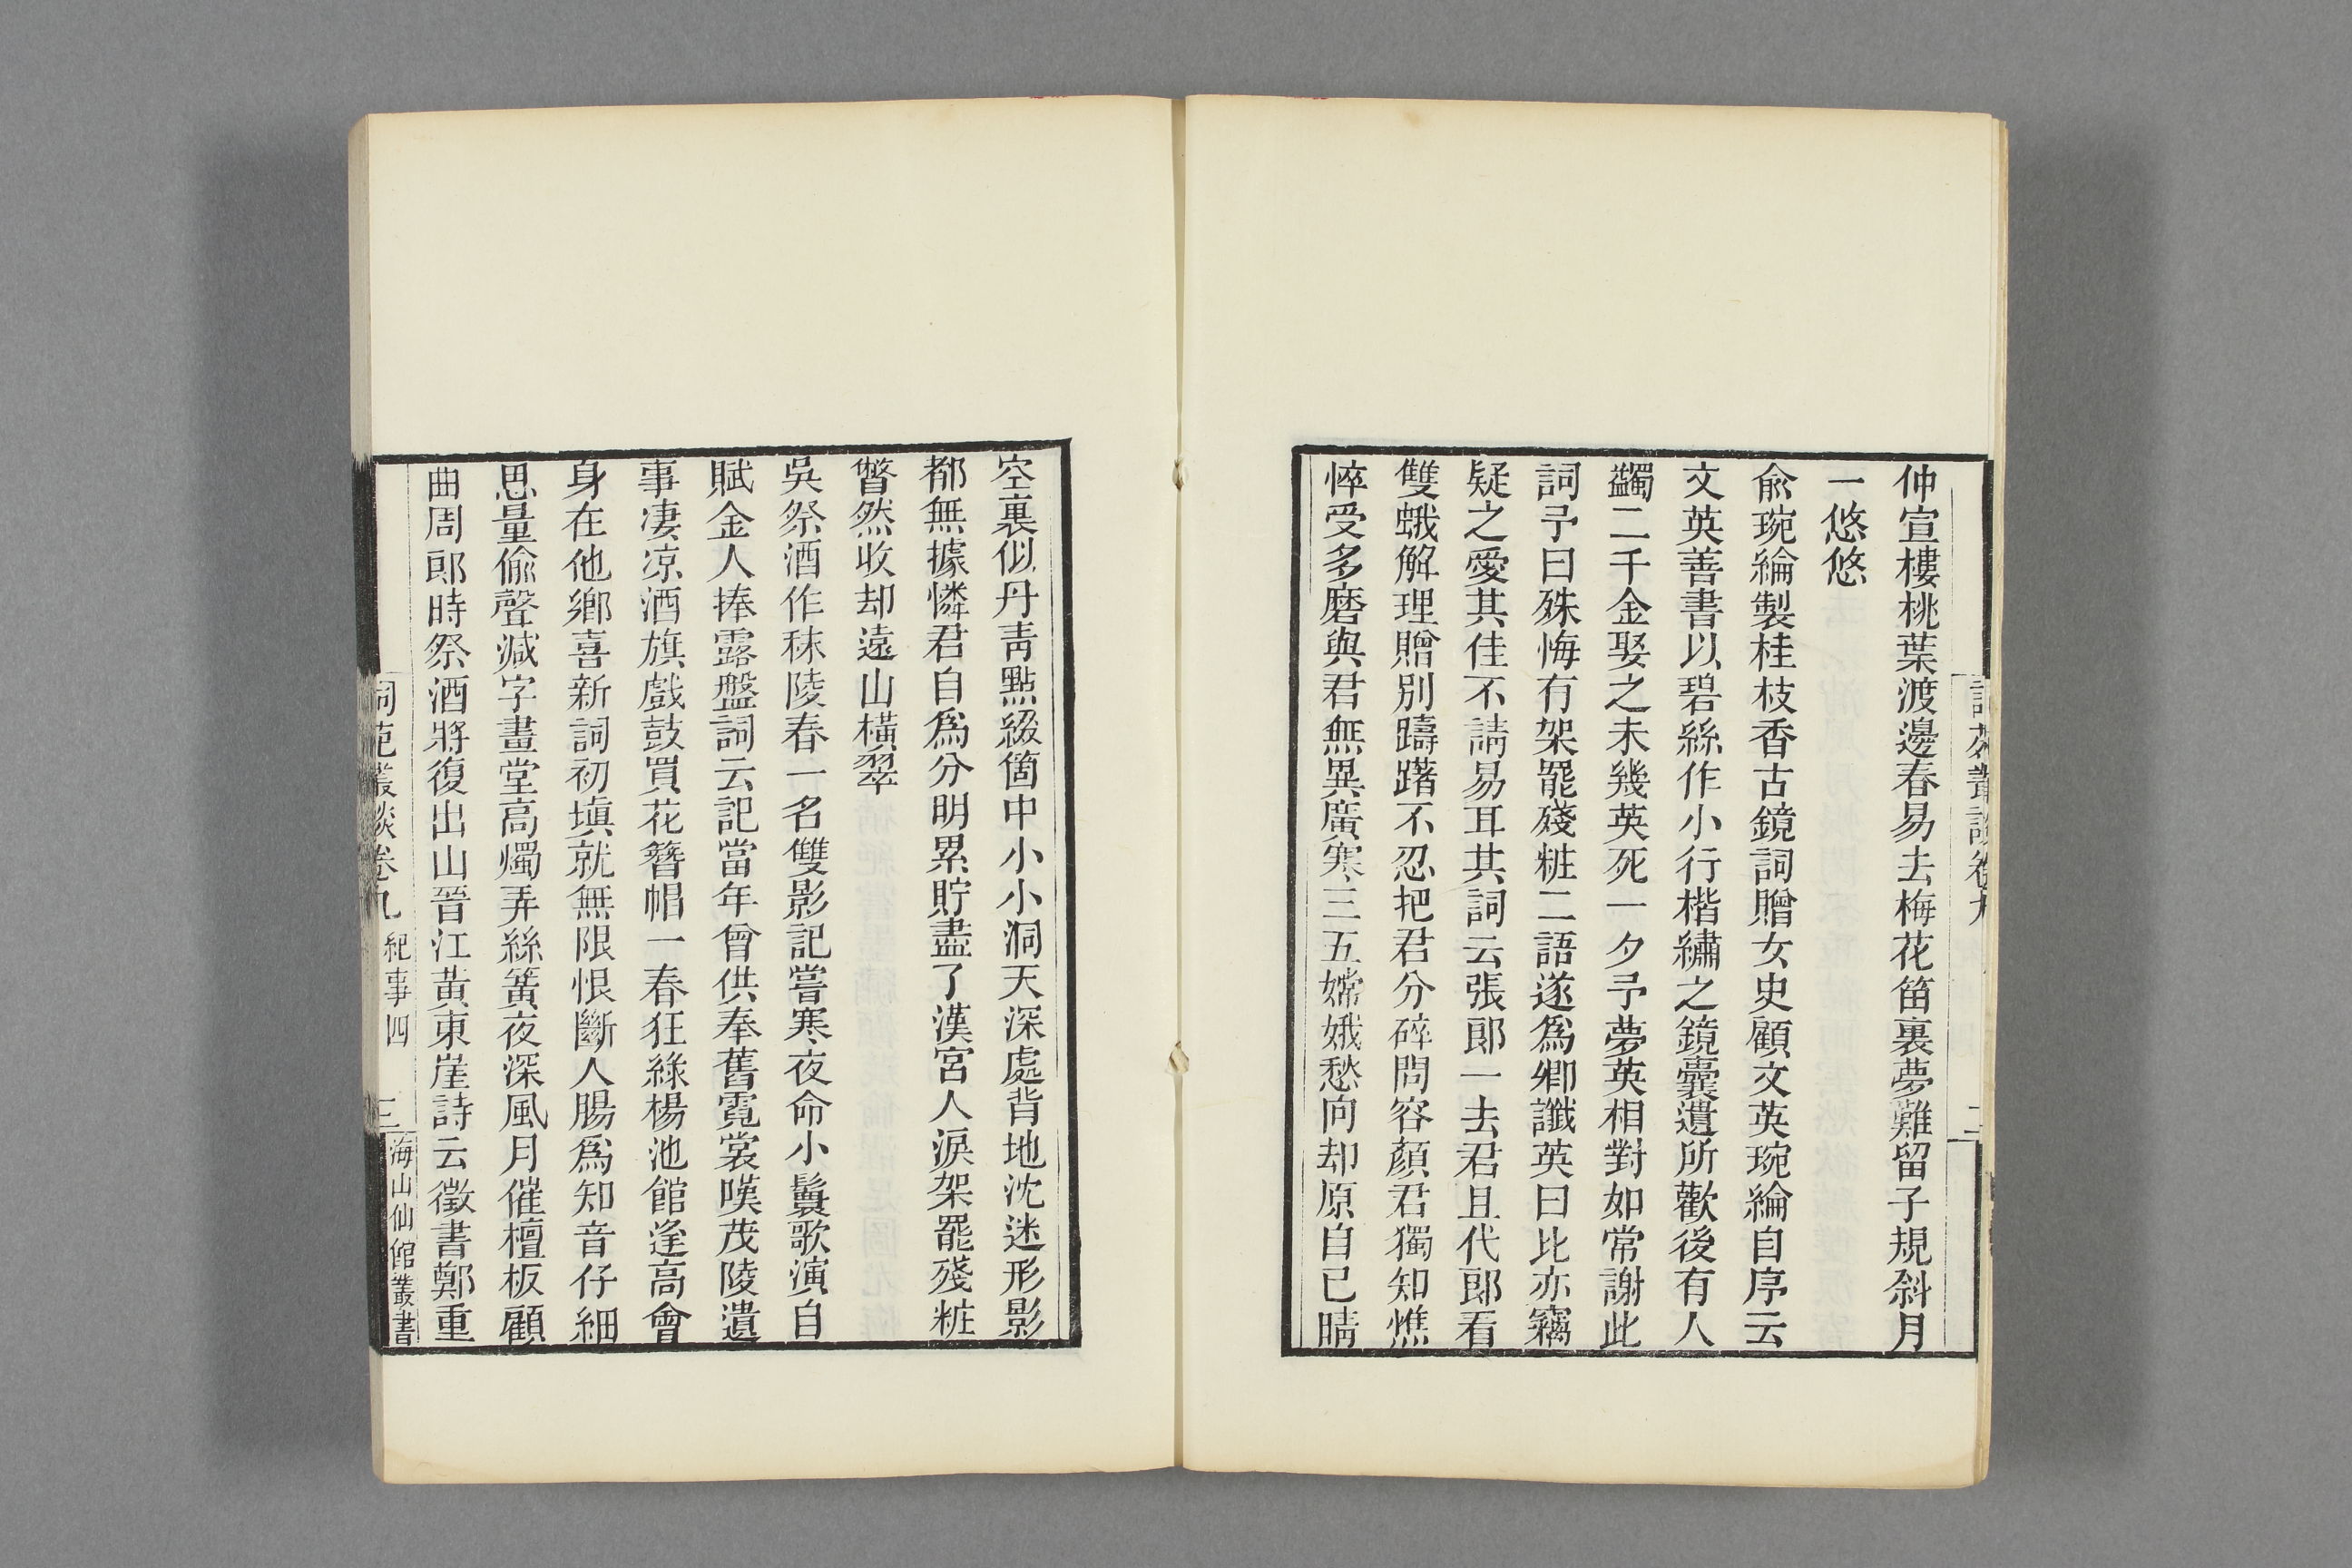 仲宣樓桃葉渡邊春易去梅花笛裏夢難留子規斜月
一悠悠
俞琬綸製桂枝香古鏡詞贈女史顧文英琬綸自序云
文英善書以碧絲作小行楷繡之鏡囊遺所歡後有人
蠲二千金娶之未幾英死一夕予夢英相對如常謝此
詞予曰殊悔有架罷殘粧二語遂爲卿讖英曰比亦竊
疑之愛其佳不請易耳其詞云張郎一去君且代郎看
雙蛾解理贈別躊躇不忍把君分碎問容顏君獨知憔
悴受多磨與君無異廣寒三五嫦娥愁向却原自已晴
空裏似丹靑點綴箇中小小洞天深處背地沈迷形影
都無據憐君自爲分明累貯盡了漢宮人淚架罷殘粧
瞥然收却遠山橫翠
吳祭酒作秣陵春一名雙影記嘗寒夜命小鬟歌演自
賦金人捧露盤詞云記當年曾供奉舊霓裳嘆茂陵遺
事凄凉酒旗戲鼓買花簪帽一春狂綠楊池館逢高會
身在他鄉喜新詞初塡就無限恨斷人腸爲知音仔細
思量偸聲減字畫堂高燭弄絲簧夜深風月催檀板顧
曲周郎時祭酒將復出山晉江黃東崖詩云徵書鄭重
詞苑叢談卷九 紀事四 三 海山仙館叢書